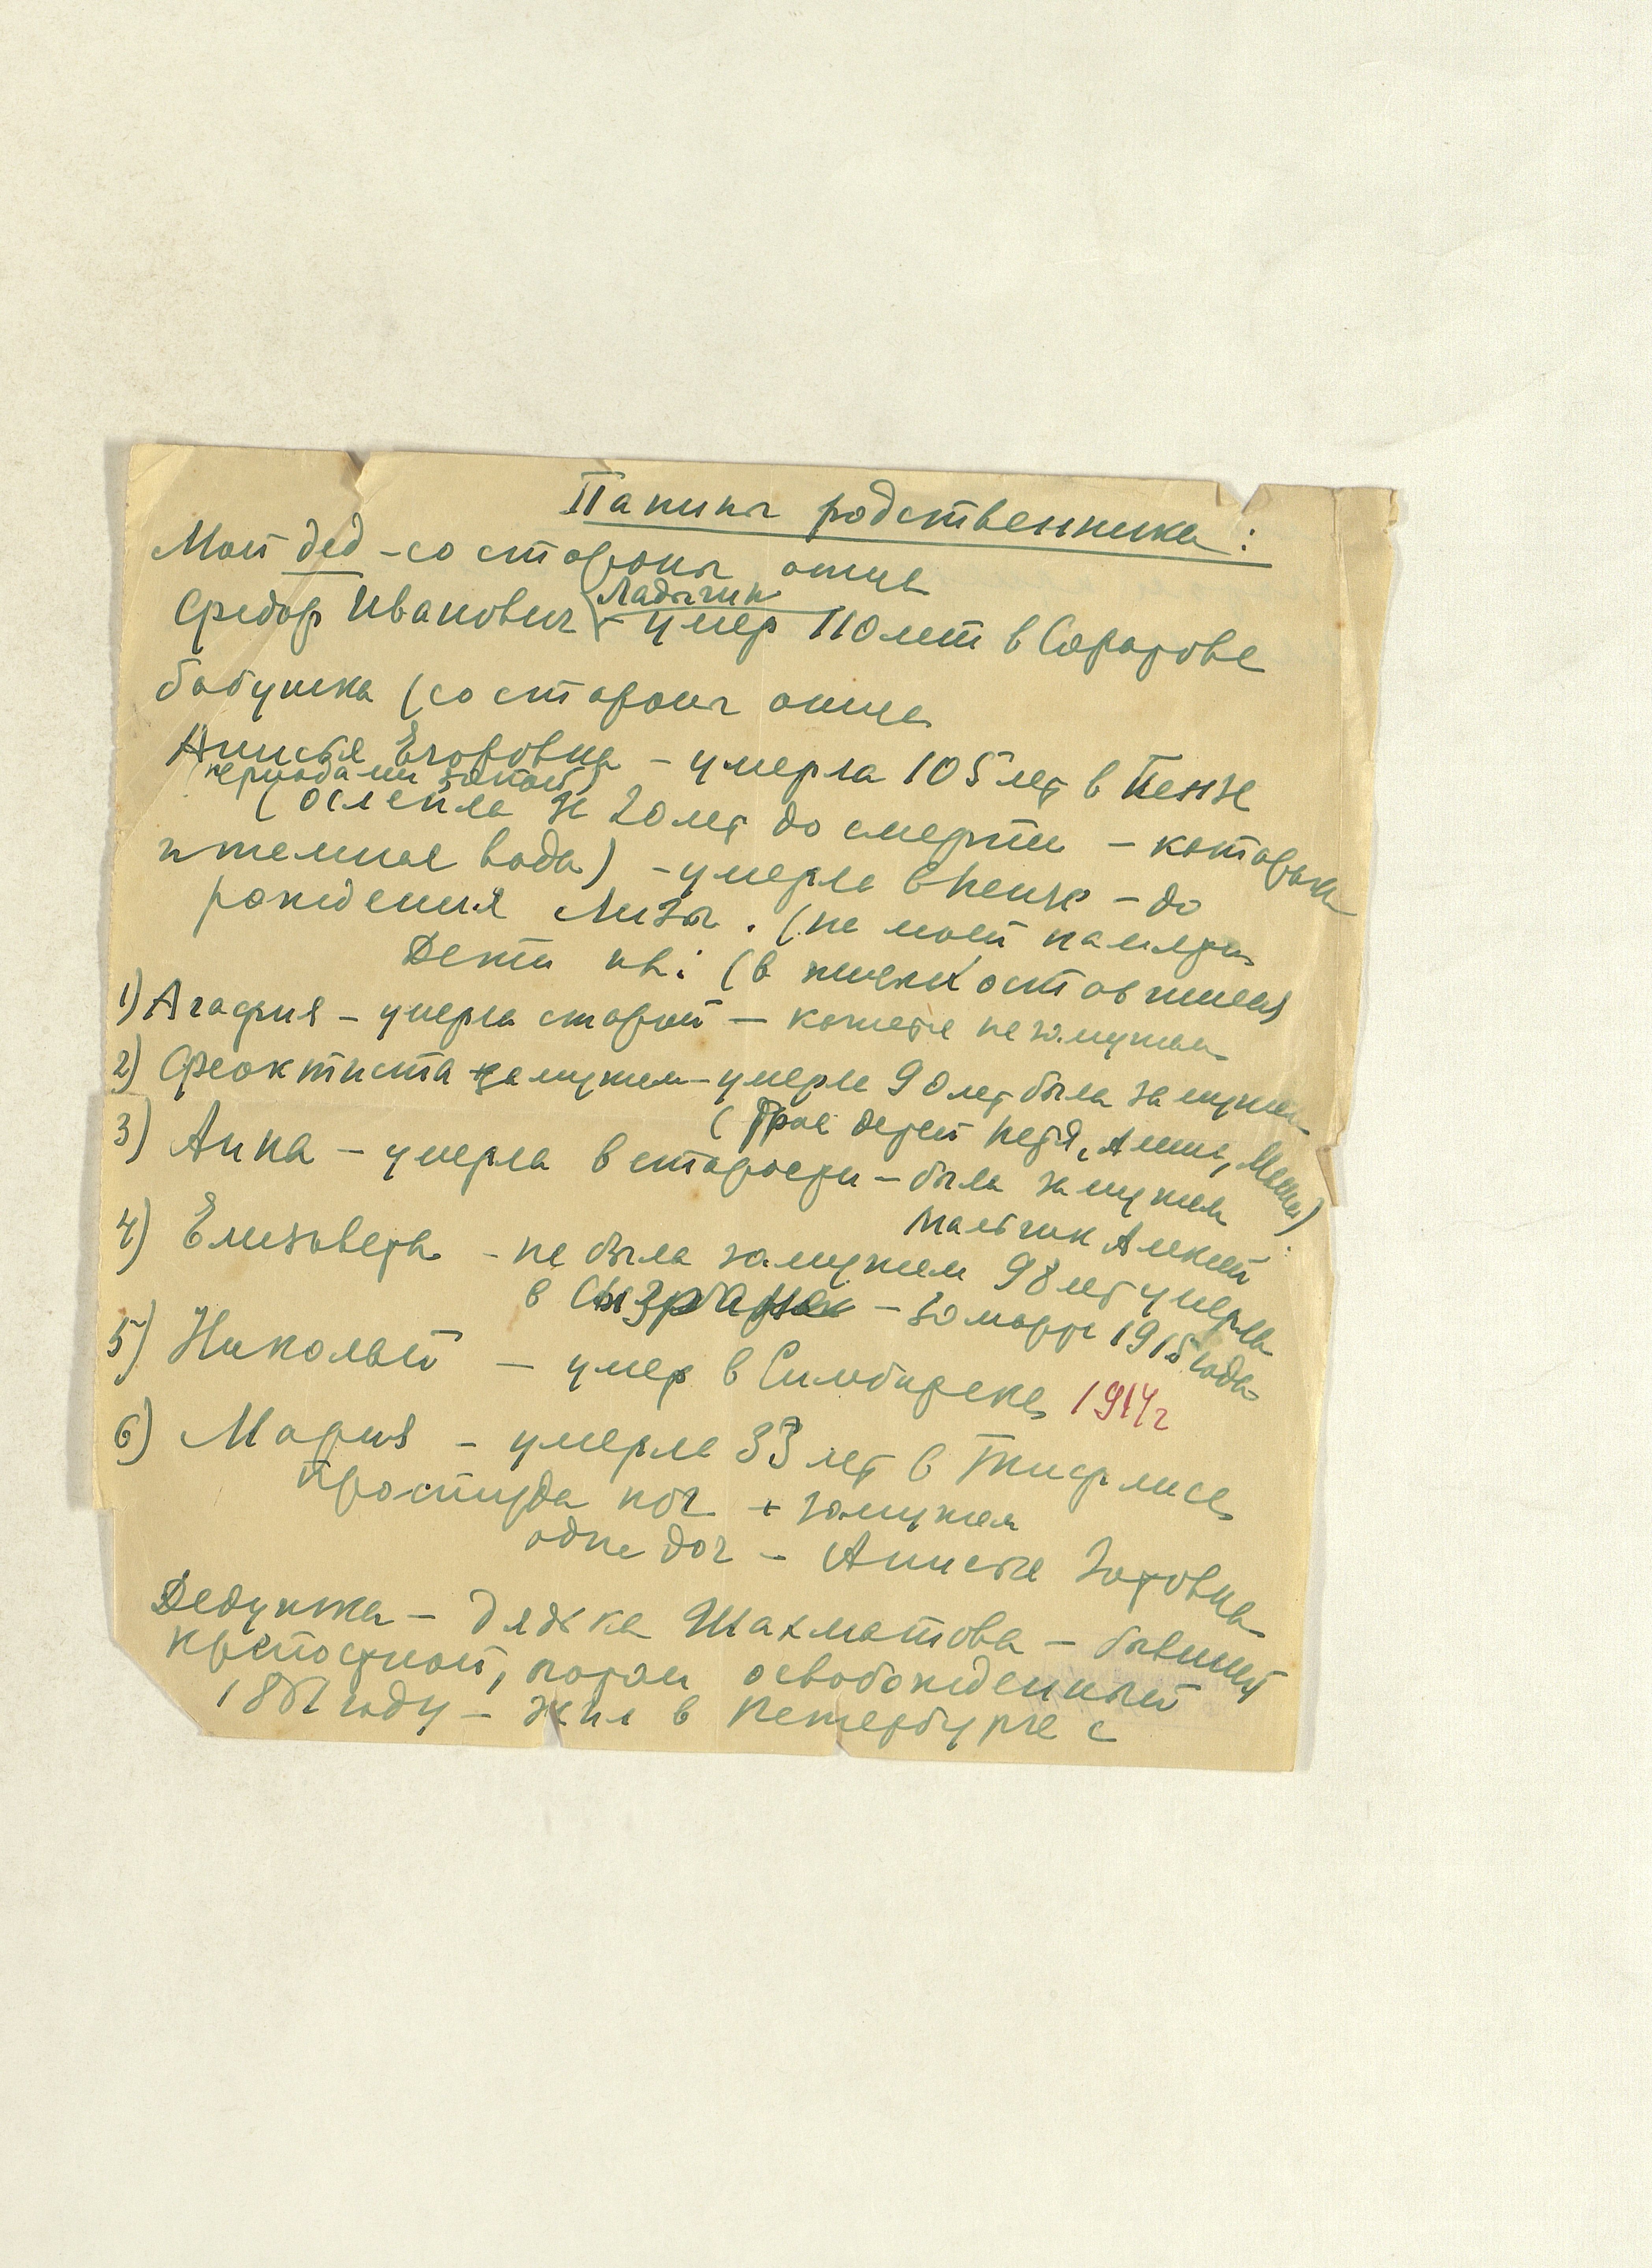 Папины родственники:
Мой дед - со стороны отца
Ладыгин
Федор Иванович (- умер 110 лет в Саратове
бабушка (со стороны отца
Анисья Егоровна - умерла 105 лет в Пензе
(периодами запой)
(ослепла за 20 лет до смерти - катаракта
и темная вода) - умерла в Пензе - до
рождения Лизы. (не моей памяти
Дети их: (в живых оставшиеся)
1) Агафия - умерла старой - кажется не замужем
2) Феоктиста замужем - умерла 90 лет была замужем
(трое детей Петя, Анна, Маша)
3) Анна - умерла в старости - была замужем
мальчик Алексей
4) Елизавета - не была замужем 98 лет умерла
в Сызрани - 30 марта 1915 года
5) Николай - умер в Симбирске 1914 г
6) Мария - умерла 33 лет в Тифлисе
простуда ног + замужем
одна доч - Анисья Зотовна
Дедушка - дядька Шахматова - бывший
крепостной, потом освобожденный
1861 году - жил в Петербурге с